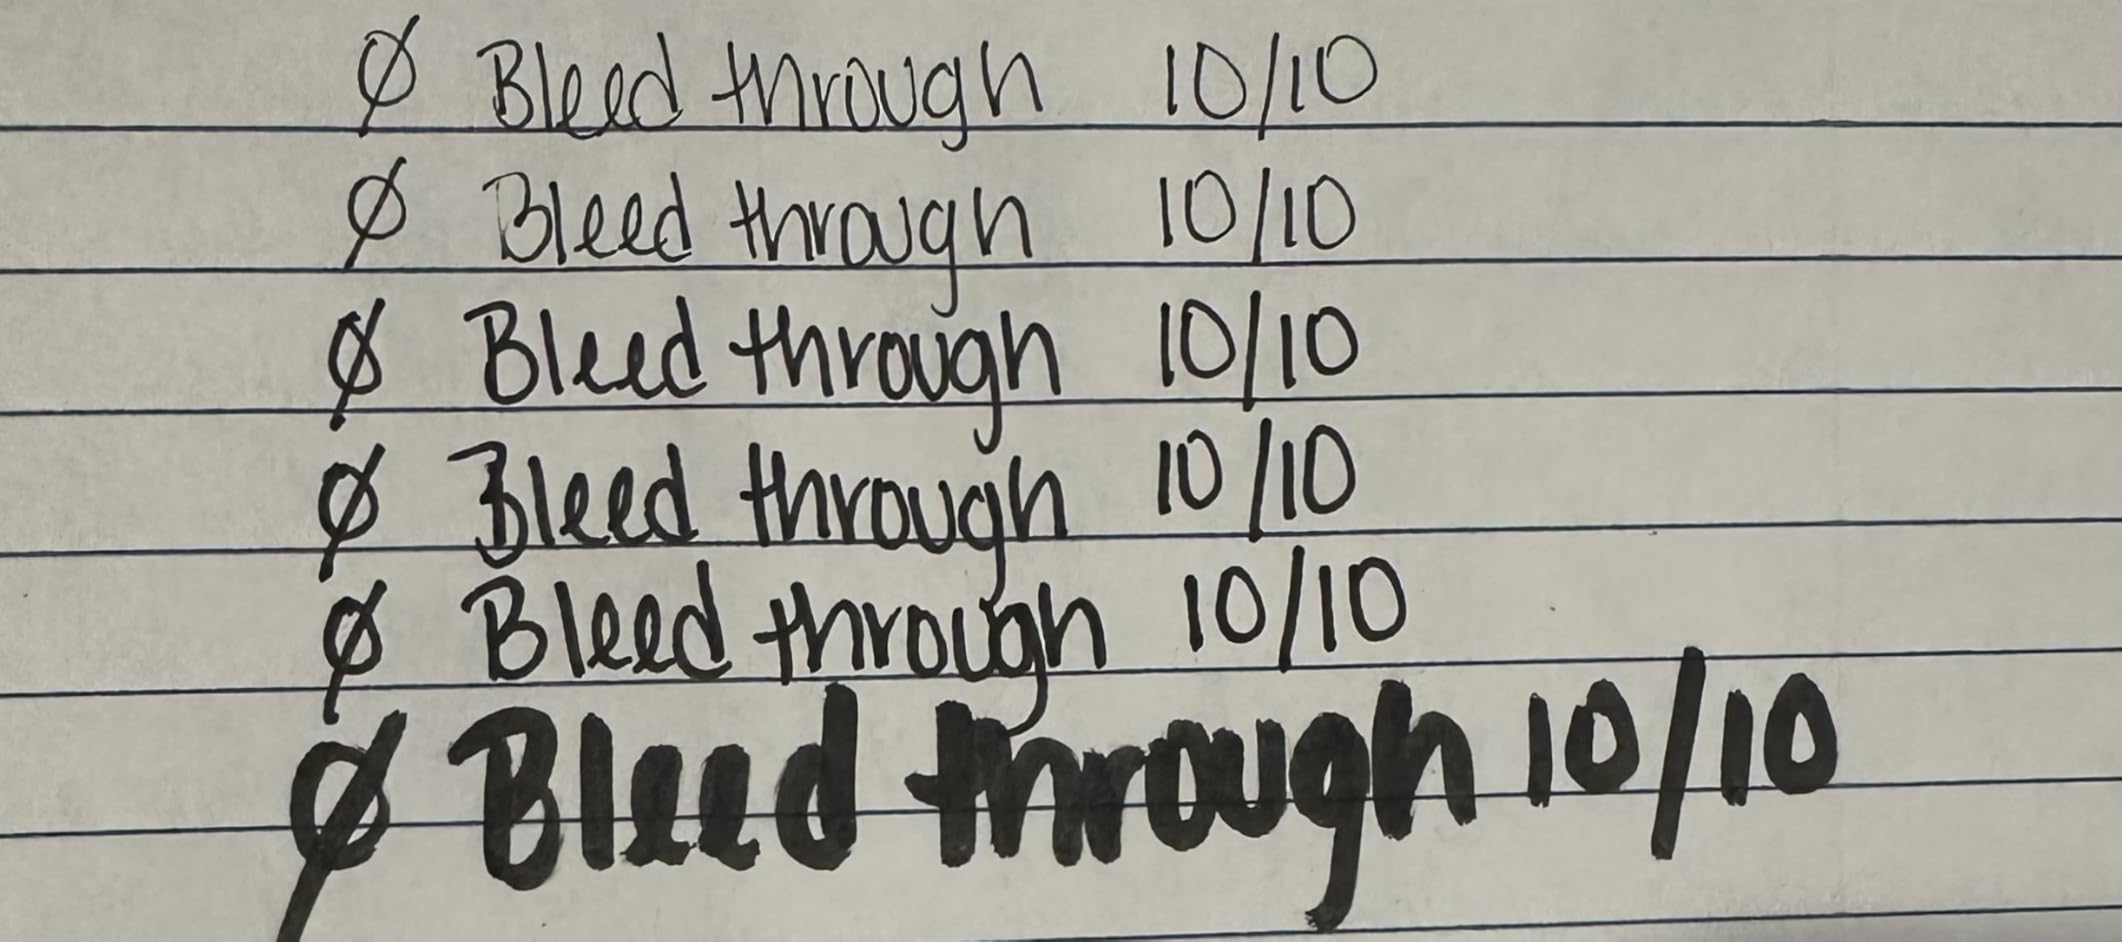 Ø Bleed through 10/10
Ø Bleed through 10/10
Ø Bleed through 10/10
Ø Bleed through 10/10
Ø Bleed through 10/10
Ø Bleed through 10/10